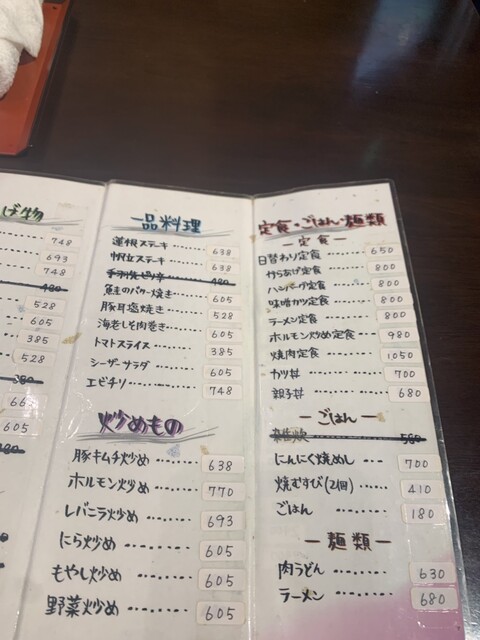 げ物
748
693
748
480
528
605
385
528
380
605
一品料理
蓮根ステーキ 638
帆立ステーキ 638
480
鮭のバター焼き 605
豚耳塩焼き 528
海老しそ肉巻き 605
トマトスライス 385
シーザーサラダ 605
エビチリ 748
炒めもの
豚キムチ炒め 638
ホルモン炒め 770
レバニラ炒め 693
にら炒め 605
もやし炒め 605
野菜炒め 605
定食・ごはん・麺類
ー定食ー
日替わり定食 650
からあげ定食 800
ハンバーグ定食 800
味噌カツ定食 800
ラーメン定食 800
ホルモン炒め定食 980
焼肉定食 1050
カツ丼 700
親子丼 680
ーごはんー
560
にんにく焼めし 700
焼むすび(2個) 410
ごはん 180
ー麺類ー
肉うどん 630
ラーメン 680